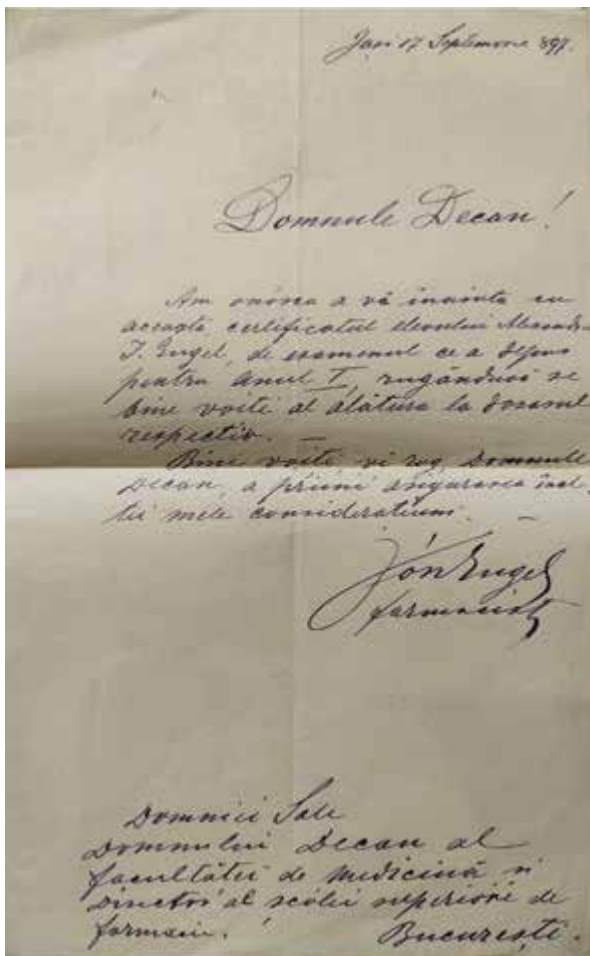 Jași 17 Septemvrie 897.
Domnule Decan!
Am onórea a vă înainta cu
aceasta certificatul elevului Alexandru
I. Engel, de examenul ce a depus
pentru anul I, rugânduvĕ se
bine voiti al alătura la dosarul
respectiv. —
Bine voiti vĕ rog, Domnule
Decan, a primi asigurarea înal
tei mele consideratiuni. —
Ión Engel
farmacist
Domniei Sale
Domnului Decan al
facultăței de medicină și
director al scólei superióre de
farmacie. Bucuresti.